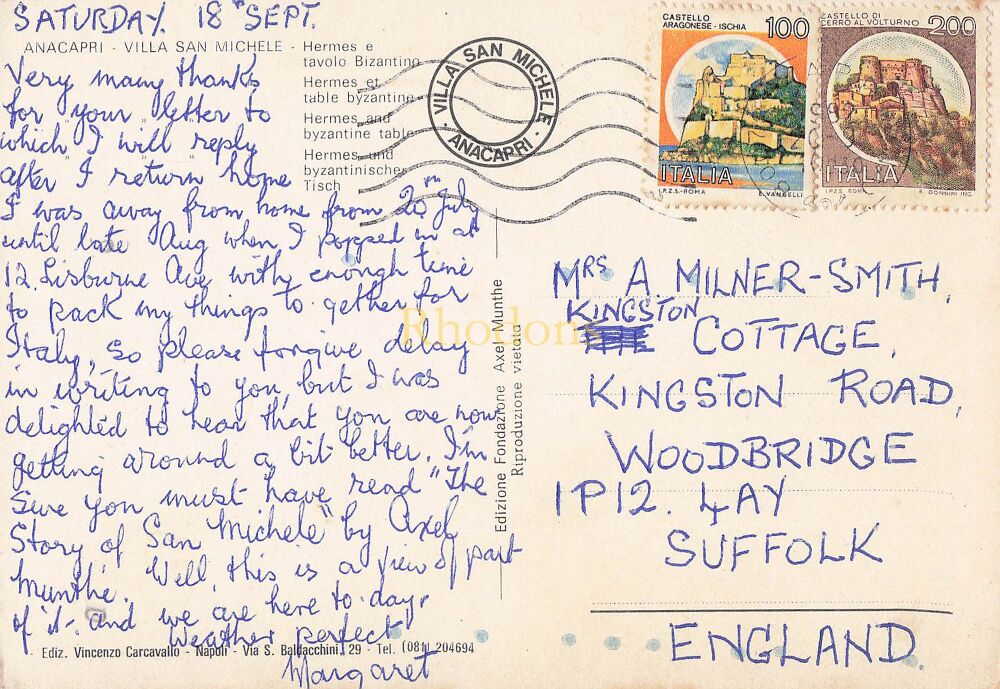 SATURDAY. 18th SEPT.
ANACAPRI - VILLA SAN MICHELE - Hermes e
tavolo Bizantino
Hermes et
table byzantine
Hermes and
byzantine table
Hermes und
byzantinischer
Tisch
Very many thanks
for your letter to
which I will reply
after I return home
I was away from home from 20th July
until late Aug when I popped in at
12. Lisburne Ave with enough time
to pack my things to-gether for
Italy, so please forgive delay
in writing to you, but I was
delighted to hear that you are now
getting around a bit better. I'm
sure you must have read "The
Story of San Michele" by Axel
Munthe. Well, this is a view of part
of it - and we are here to-day,
Weather perfect
Margaret
Ediz. Vincenzo Carcavallo - Napoli - Via S. Baldacchini, 29 - Tel. (081) 204694
Edizione Fondazione Axel Munthe
Riproduzione vietata
VILLA SAN MICHELE
ANACAPRI
CASTELLO
ARAGONESE - ISCHIA
100
ITALIA
I.P.Z.S. - ROMA
E. VANGELLI
CASTELLO DI
CERRO AL VOLTURNO
200
ITALIA
I.P.Z.S. ROMA
E. DONNINI INC.
MRS A. MILNER-SMITH,
KINGSTON
COTTAGE,
KINGSTON ROAD,
WOODBRIDGE
IP12. 4AY
SUFFOLK
ENGLAND.
Rhodons